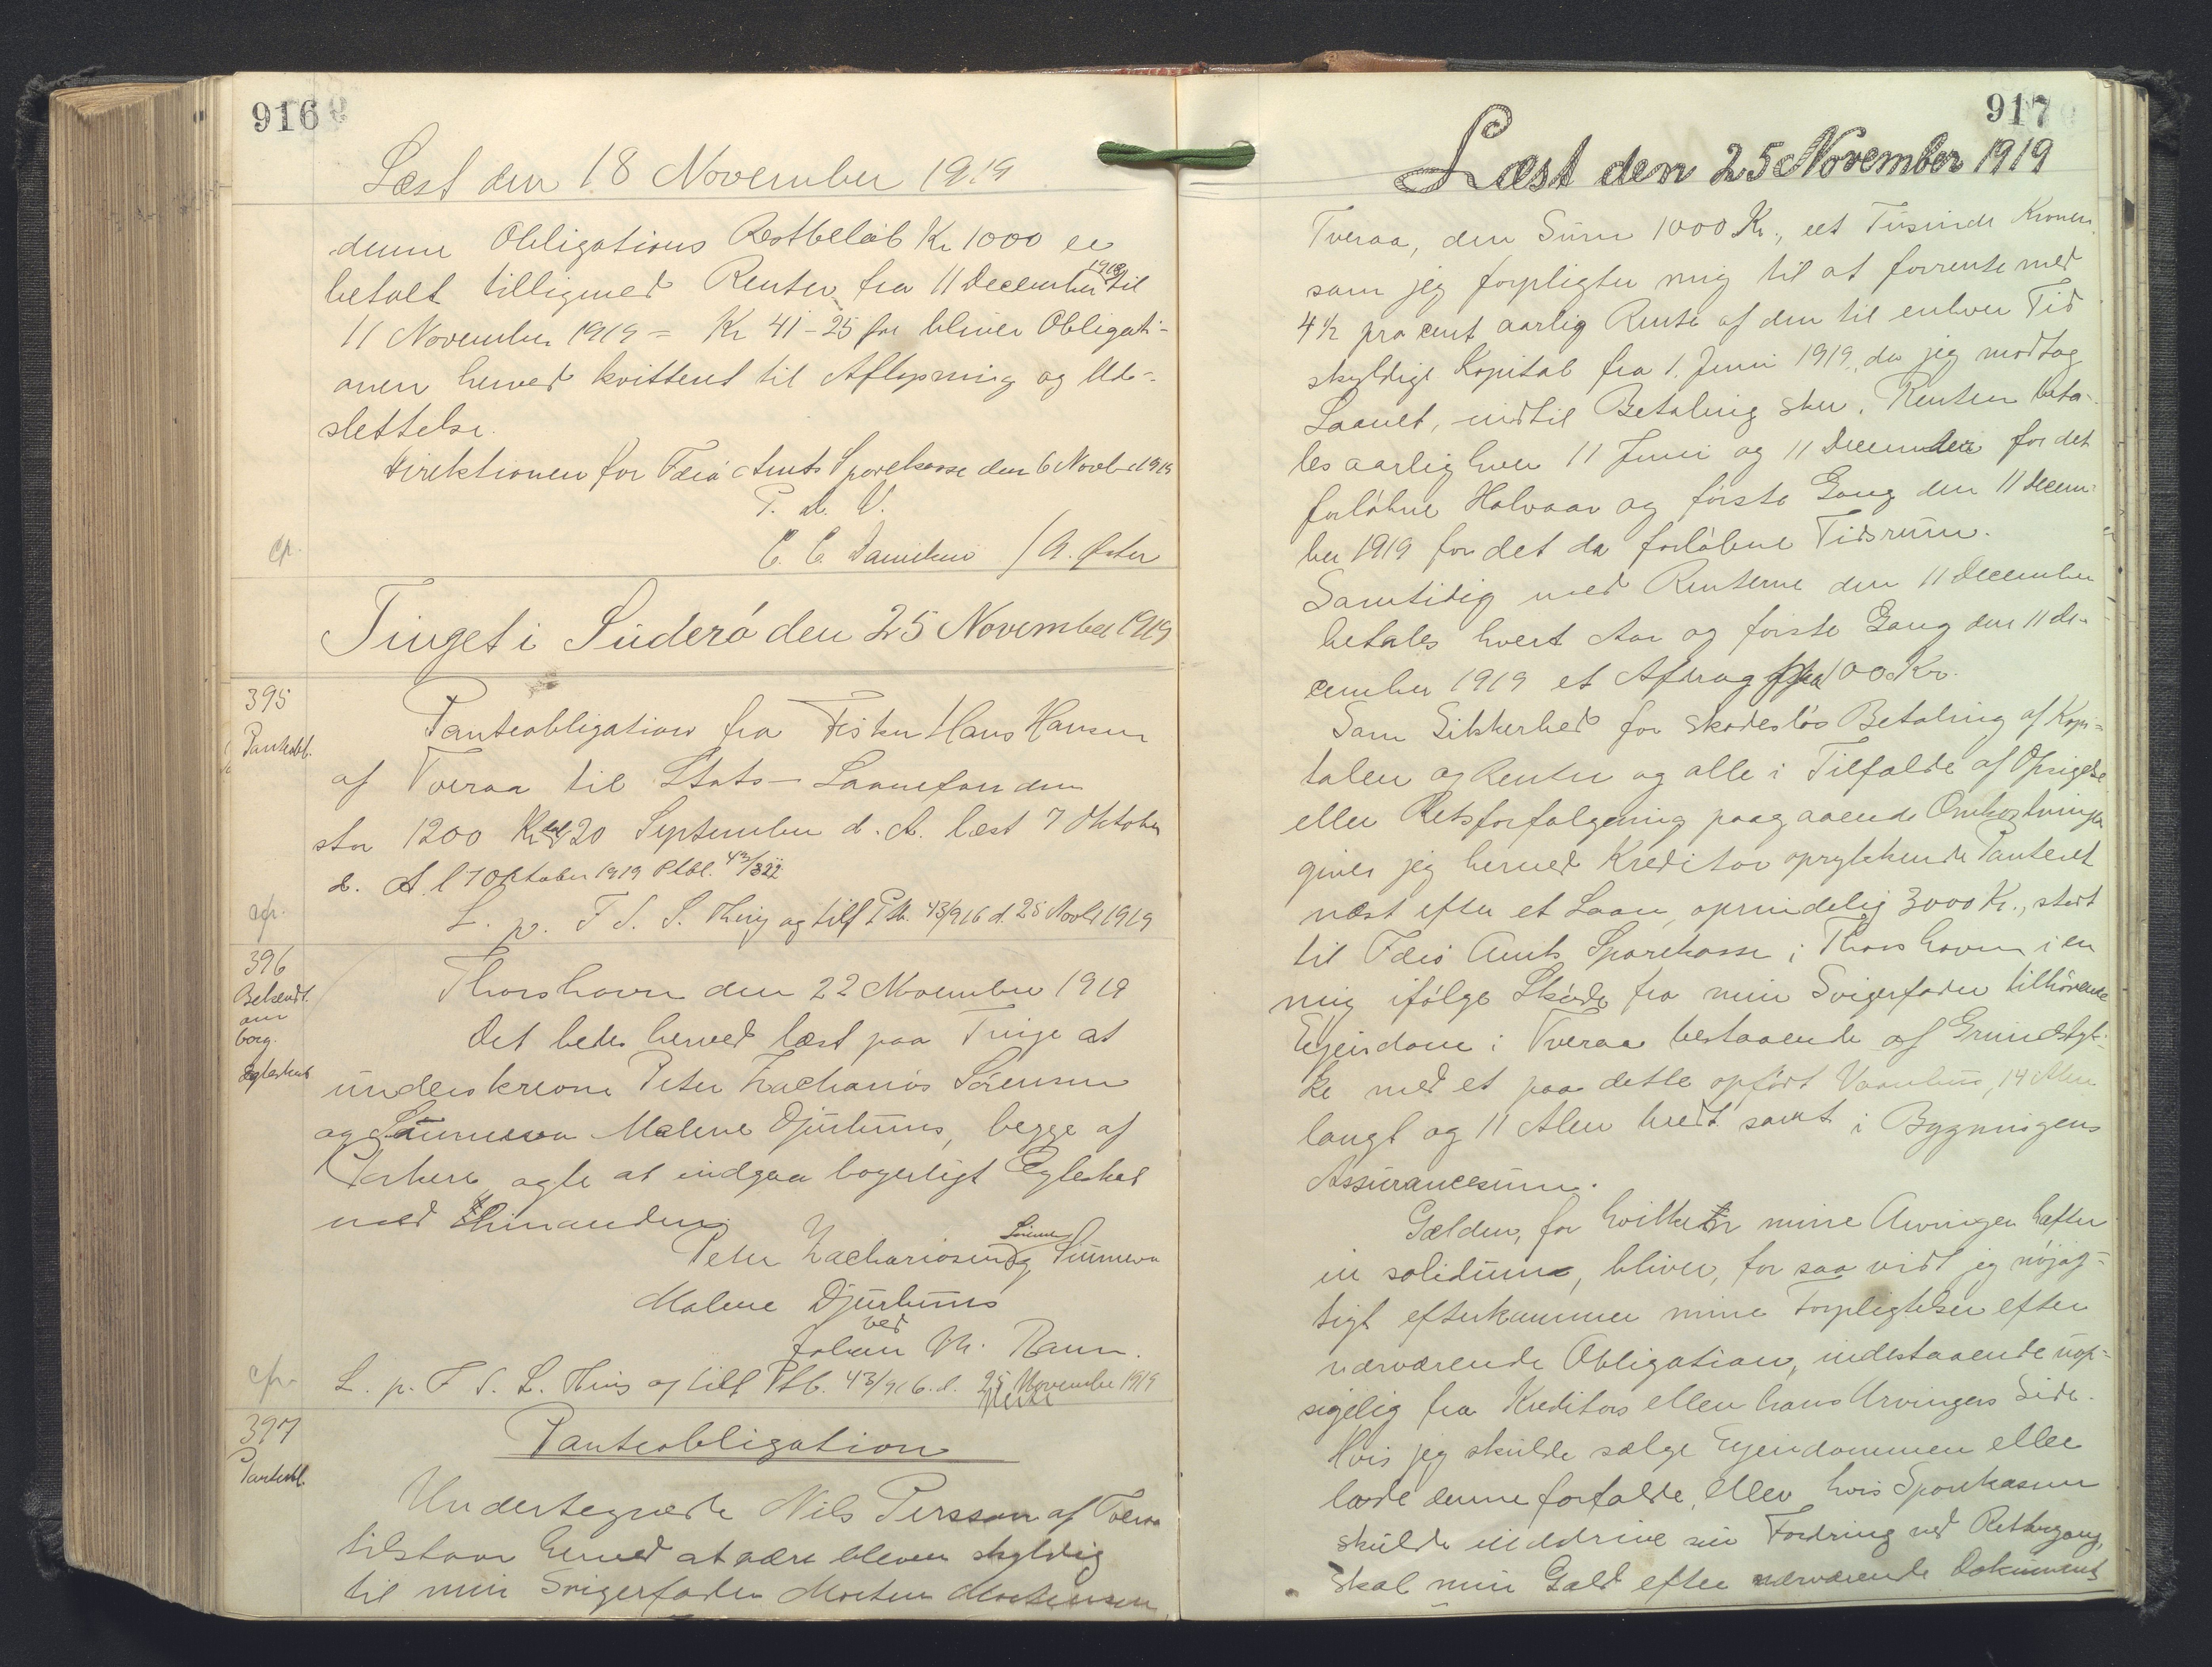 916
Læst den 18 November 1919
denne Obligations Restbeløb Kr 1000 er
betalt tilligemed Renter fra 11 December 1918 til
11 November 1919 = Kr 41-25 før bliver Obligati-
onen herved kvitteret til Aflysning og Ud-
slettelse.
Direktionen for Færø Amts Sparekasse den 6 Novbr 1919
P. D. V.
C. C. Danielsen / A. Øster
cfr.
Tinget i Suderø den 25 November 1919
395
Panteobl.
Panteobligation fra Fisker Hans Hansen
af Tveraa til Stats-Laanefonden
stor 1200 Kr ded 20 September d. A. læst 7 Oktober
d. A. l 7 Oktober 1919 Ptbl. 43/822
cfr.
L. p. F S. S. Thing og tilf Ptb. 43/916 d. 25 Novbr 1919
396
Bekendt.
om
borg.
Ægteskab
Thorshavn den 22 November 1919
Det bedes herved læst paa Tinge at
underskrevne Peter Zacharias Sørensen
og Sunneva Malene Djurhuus, begge af
Porkere agte at indgaa bogerligt Egteskab
med hinanden
Peter Zachariasen Sørensen og Sunneva
Malene Djurhuus
ved
Johan M. Ravn.
cfr.
L. p. F S. S. Thing og tilf Ptb. 43/916. d. 25 November 1919
397
Panteobl.
Panteobligation
Undertegnede Nils Persson af Tveraa
tilstaar herved at være bleven skyldig
til min Svigerfader Morten Mortensen
917
Læst den 25 November 1919
Tveraa, den Sum 1000 Kr., eet Tusinde Kroner
som jeg forpligter mig til at forrente med
4½ pro cent aarlig Rente af den til enhver Tid
skyldige Kapital fra 1. Juni 1919, da jeg modtog
Laanet, indtil Betaling sker. Renten beta-
les aarlig hver 11 Juni og 11 December for det
forløbne Halvaar og første Gang den 11 Decem-
ber 1919 for det da forløbne Tidsrum.
Samtidig med Renterne den 11 December
betales hvert Aar og første Gang den 11 De-
cember 1919 et Afdrag paa 100 Kr.
Som Sikkerhed for skadesløs Betaling af Kapi-
talen og Renter og alle i Tilfælde af Opsigelse
eller Retsforfølgning paagaaende Omkostninger
giver jeg herved Kreditor oprykkende Panteret
næst efter et Laan, oprindelig 3000 Kr., stort
til Færø Amts Sparekasse i Thorshavn i en
mig ifølge Skøde fra min Svigerfader tilhørende
Ejendom i Tveraa bestaaende af Grundstyk-
ke med et paa dette opført Vaanhus, 14 Alen
langt og 11 Alen bredt samt i Bygningens
Assurancesum.
Gælden, for hvilken mine Arvinger hæfter
in solidum, bliver, for saa vidt jeg nøjag-
tigt efterkommer mine Forpligtelser efter
nærværende Obligation, indestaaende uop-
sigelig fra Kreditors eller hans Arvingers Side.
Hvis jeg skulde sælge Ejendommen eller
lade denne forfalde, eller hvis Sparekassen
skulde inddrive sin Fordring ved Rettergang,
skal min Gæld efter nærværende Dokument